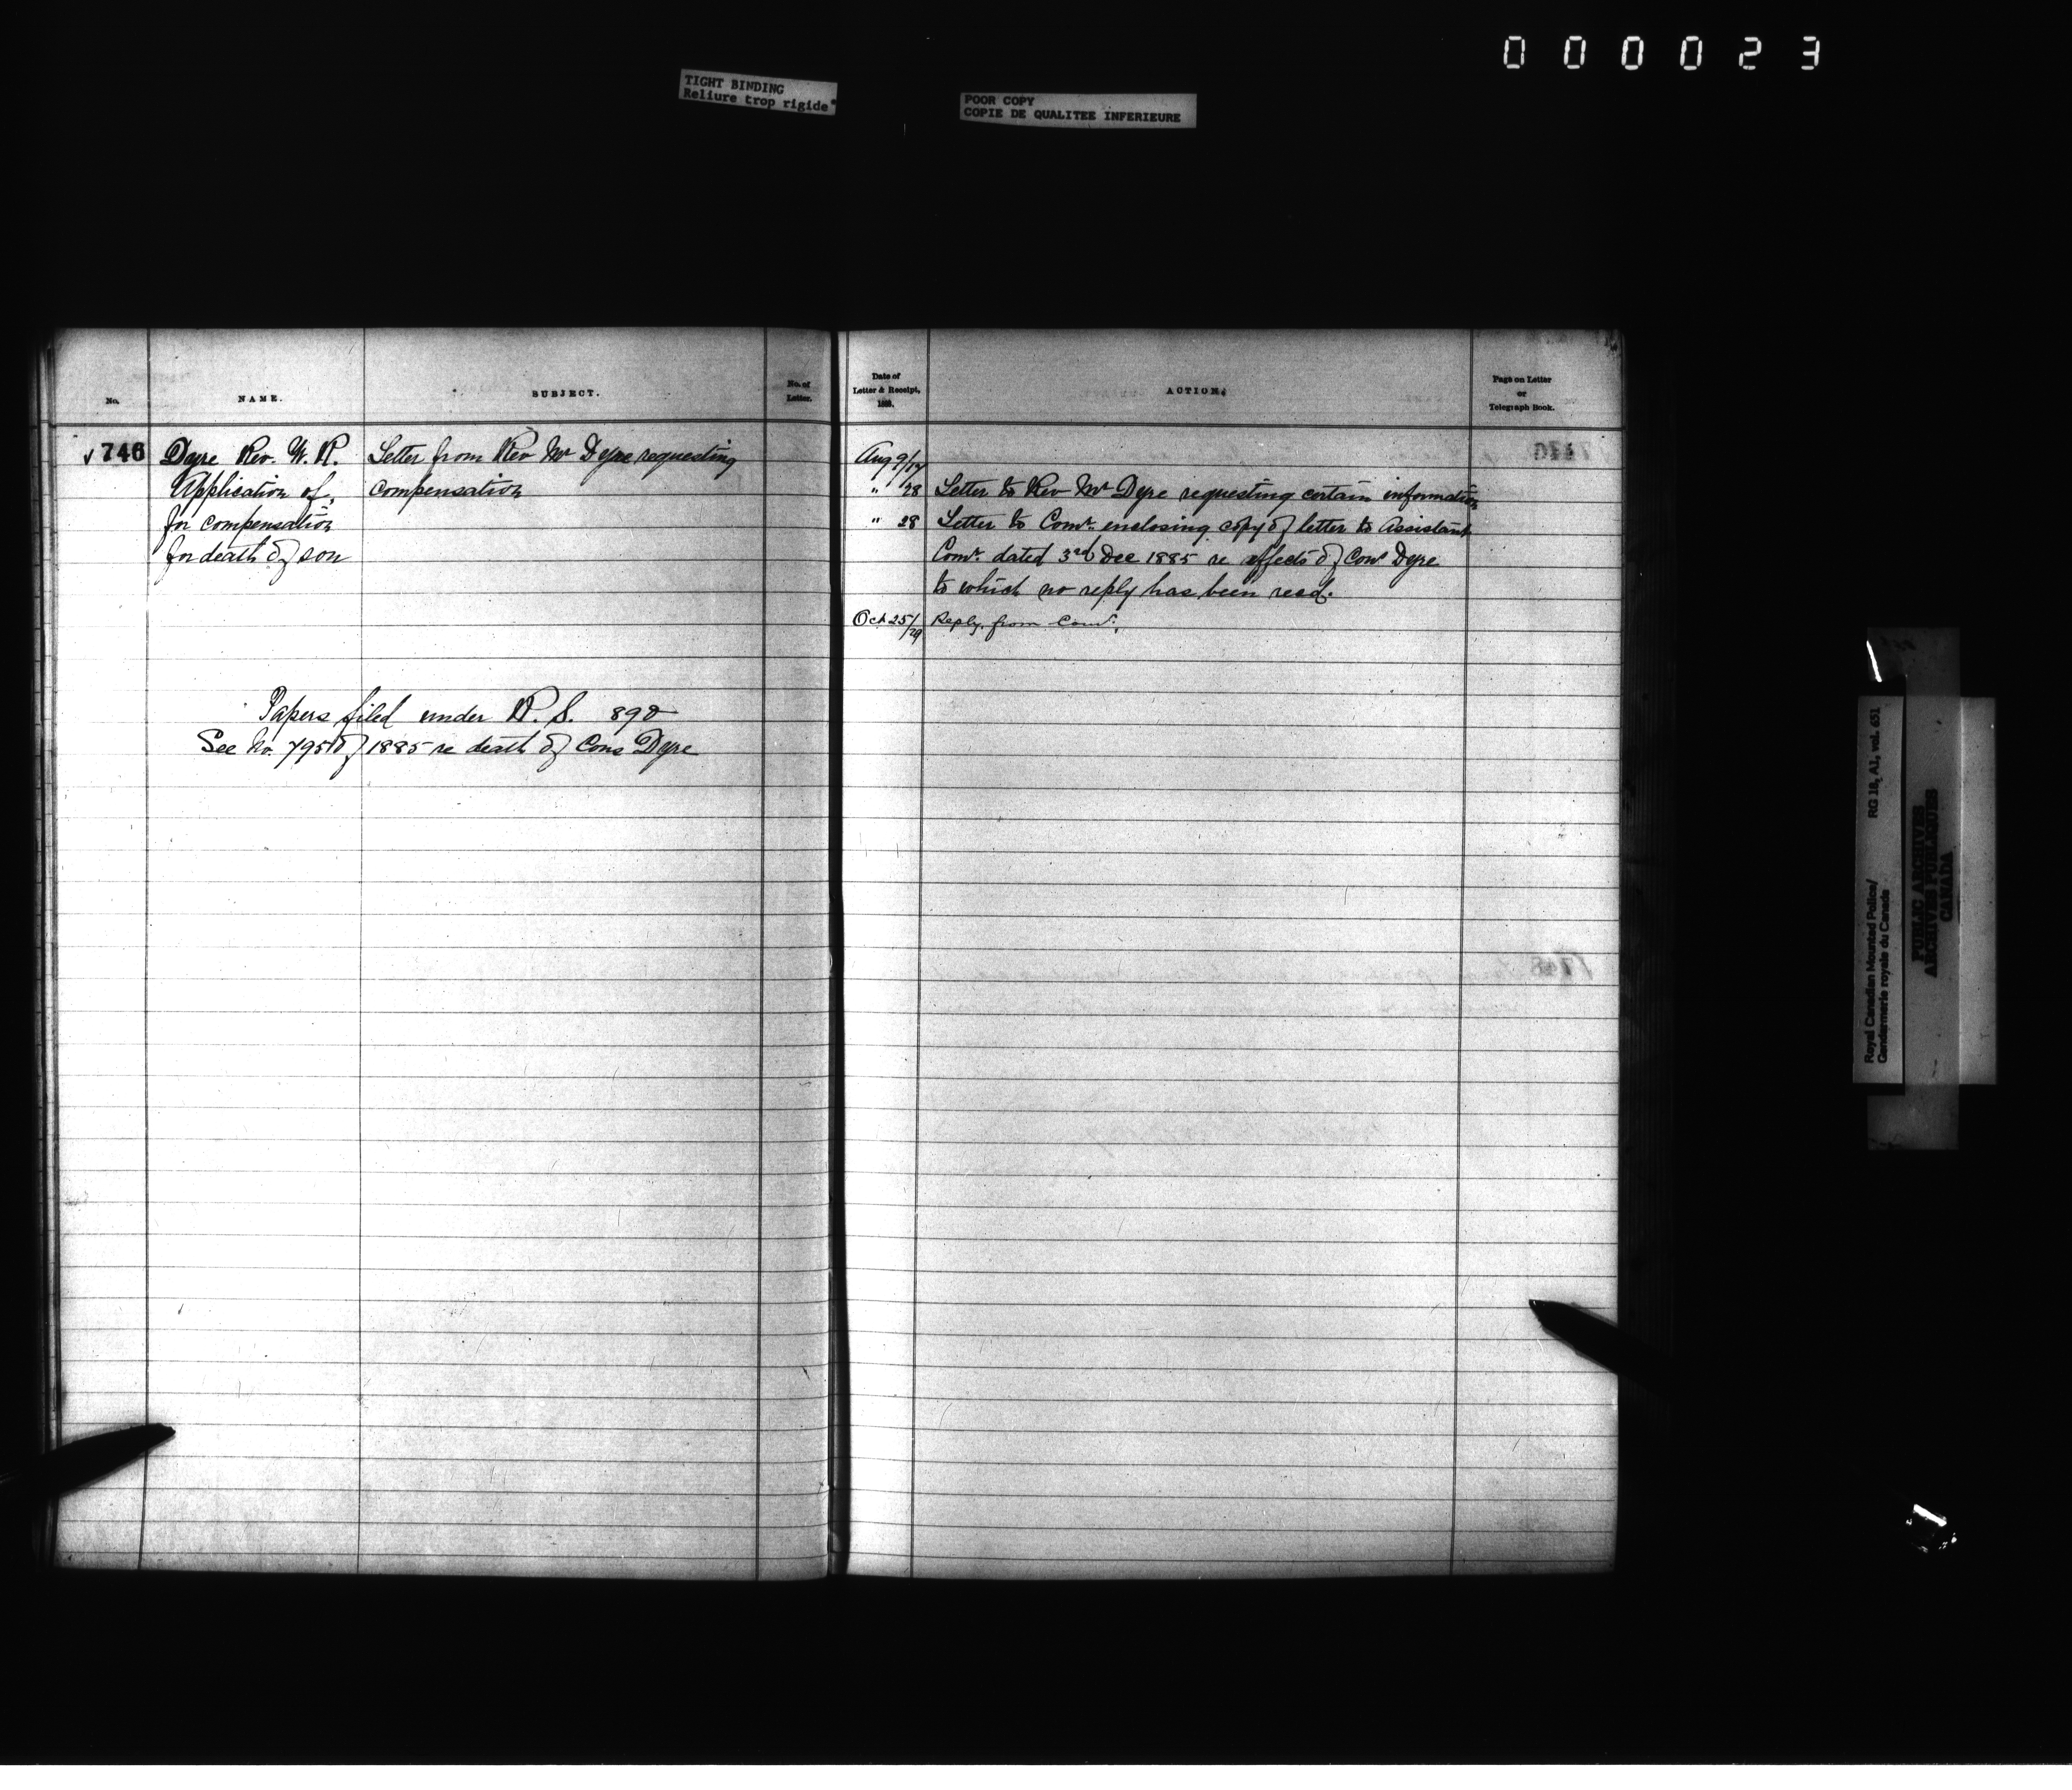 000023
TIGHT BINDING
Reliure trop rigide
POOR COPY
COPIE DE QUALITEE INFERIEURE
No.
NAME.
SUBJECT.
No. of
Letter.
Date of
Letter & Receipt,
188 .
ACTION.
Page on Letter
or
Telegraph Book.
746 Deyre Rev. W. R. Letter from Rev Mr Deyre requesting
Application of, compensation
for compensation
for death of son
Papers filed under R. S. 890
See No. 795 of 1885 re death of Cons Deyre
Aug 9/17
" 28 Letter to Rev Mr Deyre requesting certain information
" 28 Letter to Comr. enclosing copy of letter to Assistant
Comr. dated 3rd Dec 1885 re effects of Cons Deyre
to which no reply has been recd.
Oct 25/29 Reply from Comr.
Royal Canadian Mounted Police/
Gendarmerie royale du Canada
RG 18, A1, vol. 651
PUBLIC ARCHIVES
ARCHIVES PUBLIQUES
CANADA